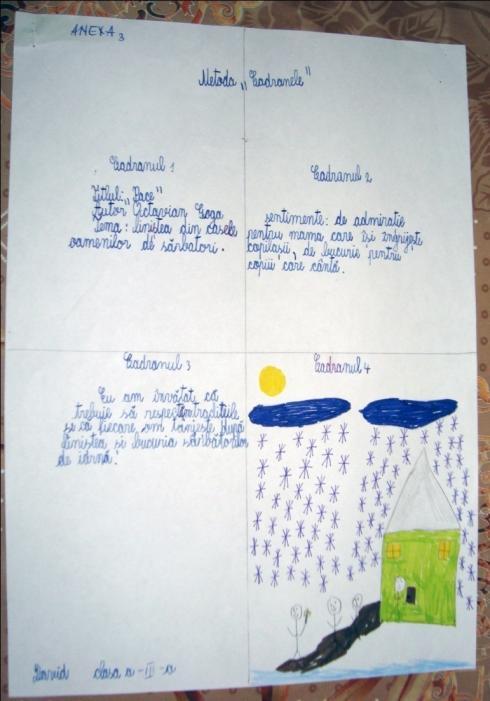 ANEXA 3
Metoda „Cadranele”
Cadranul 1
Titlul: „Pace”
Autor: Octavian Goga
Tema: liniștea din casele
oamenilor de sărbători.
Cadranul 2
sentimente: de admirație
pentru mama care își îngrijește
copilașii, de bucurie pentru
copiii care cântă.
Cadranul 3
Eu am învățat că
trebuie să respectăm tradițiile
și că fiecare om tânjește după
liniștea și bucuria sărbătorilor
de iarnă!
Cadranul 4
David clasa a-III-a